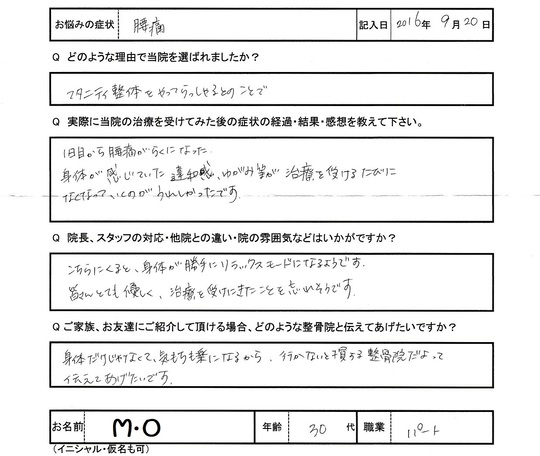 お悩みの症状 腰痛 記入日 2016年 9月20日
Q どのような理由で当院を選ばれましたか？
マタニティ整体をやってらっしゃるとのことで
Q 実際に当院の治療を受けてみた後の症状の経過・結果・感想を教えて下さい。
1日目から腰痛がらくになった。
身体が感じていた違和感、ゆがみ等が治療を受けるたびに
なくなっていくのがうれしかったです。
Q 院長、スタッフの対応・他院との違い・院の雰囲気などはいかがですか？
こちらにくると、身体が勝手にリラックスモードになるようです。
皆さんとても優しく、治療を受けにきたことを忘れそうです。
Q ご家族、お友達にご紹介して頂ける場合、どのような整骨院と伝えてあげたいですか？
身体だけじゃなくて、気もちも楽になるから、行かないと損する整骨院だよって
伝えてあげたいです。
お名前 M・O 年齢 30代 職業 パート
(イニシャル・仮名も可)